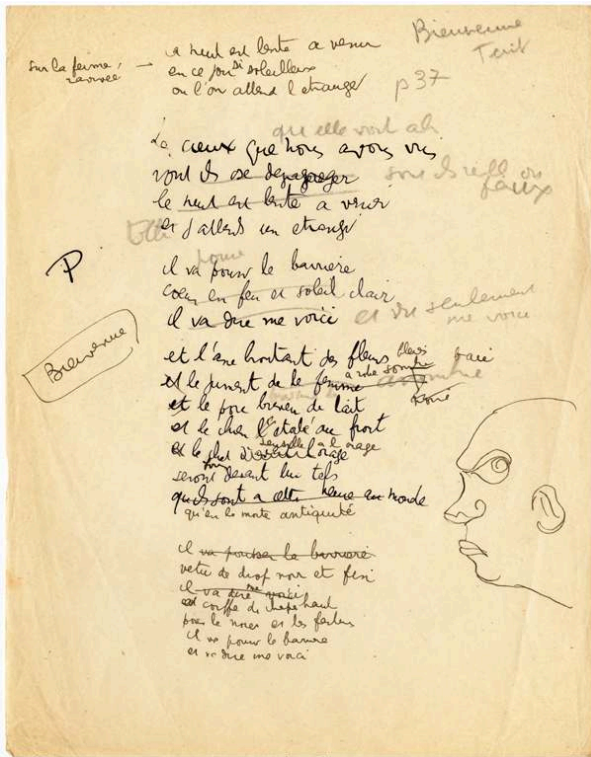 Bienvenue
p 37
sur la ferme,
la nuit est lente a venir
en ce jour si soleilleux
ou l'on attend l'etranger
qu elle voit
cieux que nous avons vus
vont ils se
le nuit est lente a venir
et j'attends un etranger
P
il va pousser la barriere
coeur en feu et soleil clair
il va dire me voici et dit seulement
me voici
Bienvenue
et l'ane broutant des fleurs bleues
et le jument de la femme a robe sombre
et le porc buveur de lait
et le chien l'etoile au front
et le chat sensible a l orage
seront devant lui tels
qu'ils sont a cette heure au monde
qu'en la morte antiquité
il va pousser la barriere
vetu de drap noir et fin
il va dire me voici
et coiffe de chapeau haut
pour le noces et les festins
il va pousser la barriere
et va dire me voici